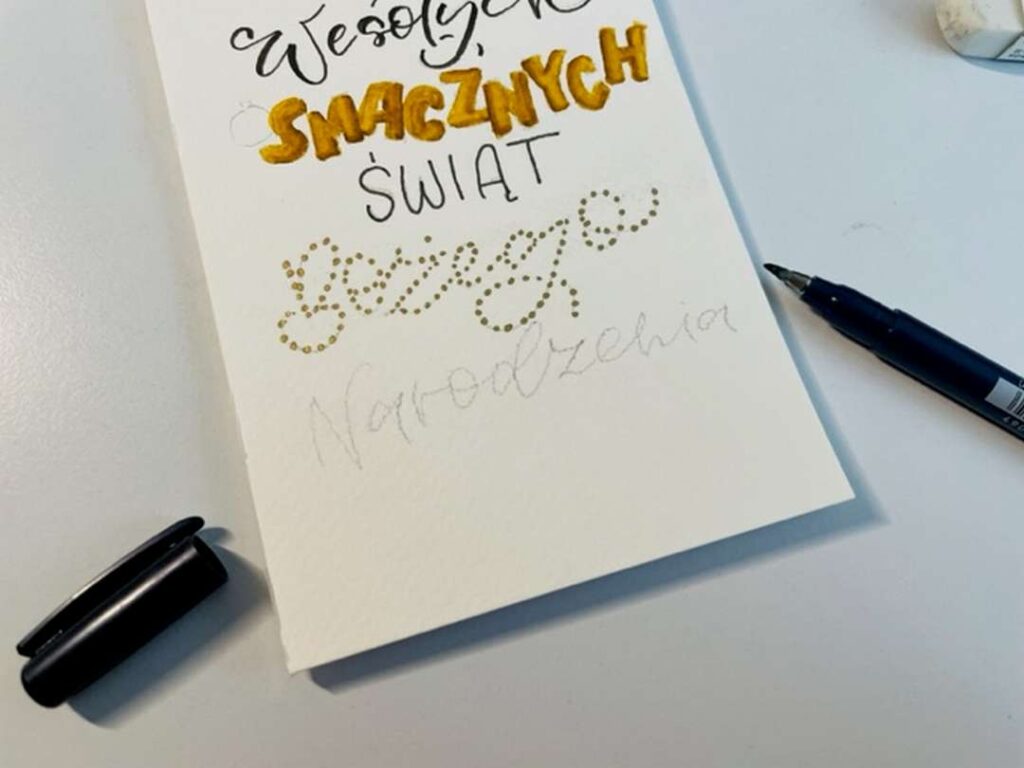 Wesołych
SMACZNYCH
ŚWIĄT
Bożego
Narodzenia